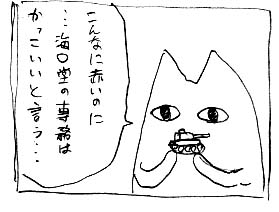 こんなに赤いのに
…海口堂の専務は
かっこいいと言う…